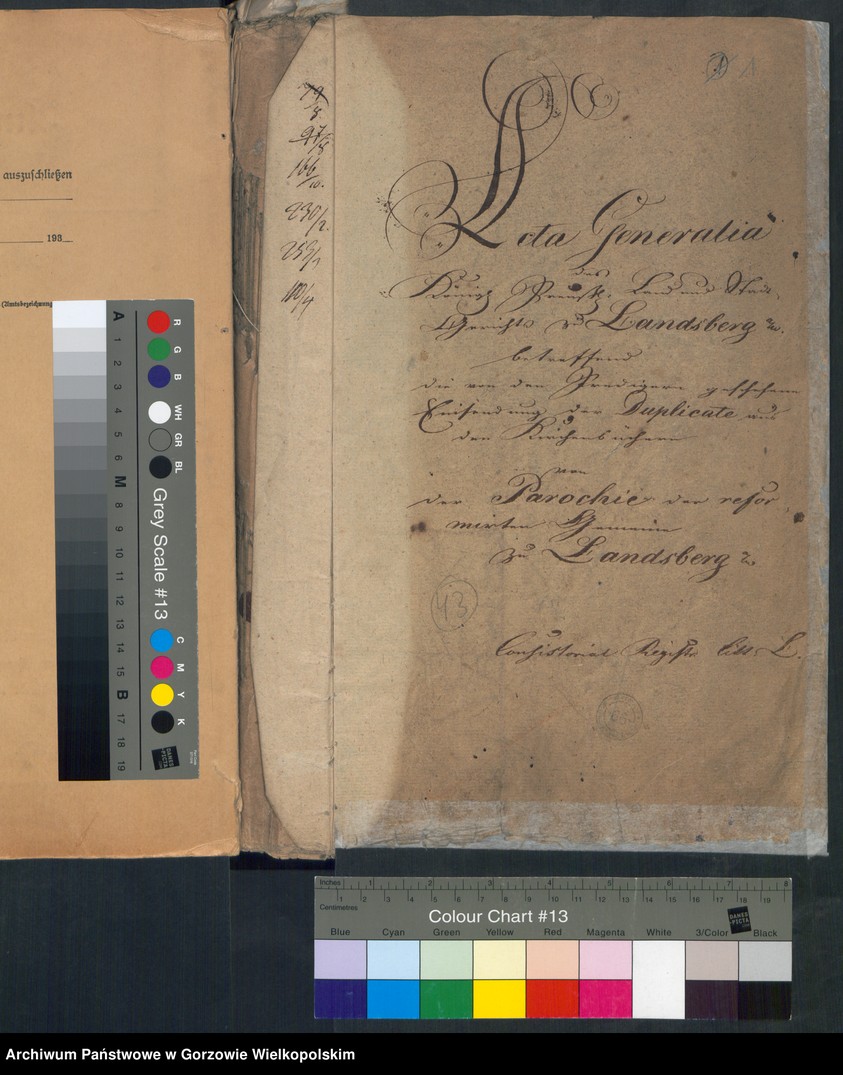 auszuschließen
193
(Amtsbezeichnung
79/8
166/10.
230/2.
259/1
100/4
1
Acta Generalia
des
Königl. Preuß. Land und Stadt
Gerichts zu Landsberg a/W.
betreffend
die von den Predigern geschehene
Einsendung der Duplicate aus
den Kirchenbüchern
von
der Parochie der refor-
mirten Gemeine
zu Landsberg a/W
43
Consistorial Registr. Litt. L.
A 1 2 3 4 5 6 M 8 9 10 11 12 13 14 15 B 17 18 19
R G B WH GR BL
Grey Scale #13
C M Y K
DANES PICTA
Inches 1 2 3 4 5 6 7 8
Centimetres 1 2 3 4 5 6 7 8 9 10 11 12 13 14 15 16 17 18 19
Colour Chart #13
DANES PICTA .COM
Blue Cyan Green Yellow Red Magenta White 3/Color Black
Archiwum Państwowe w Gorzowie Wielkopolskim